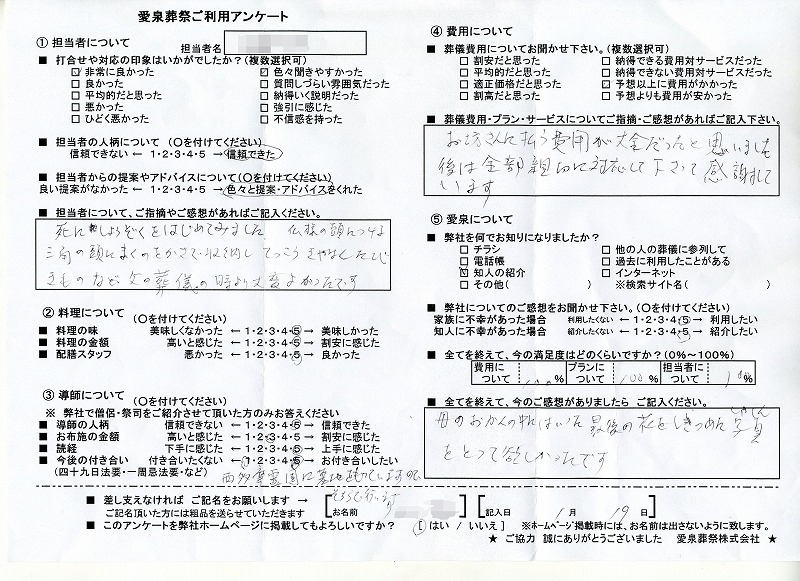 愛泉葬祭ご利用アンケート
① 担当者について
担当者名
■ 打合せや対応の印象はいかがでしたか？(複数選択可)
□ 非常に良かった ☑ 色々聞きやすかった
□ 良かった □ 質問しづらい雰囲気だった
□ 平均的だと思った □ 納得いく説明だった
□ 悪かった □ 強引に感じた
□ ひどく悪かった □ 不信感を持った
■ 担当者の人柄について (〇を付けてください)
信頼できない ← 1・2・3・4・5 → 信頼できた
■ 担当者からの提案やアドバイスについて(〇を付けてください)
良い提案がなかった ← 1・2・3・4・5 → 色々と提案・アドバイスをくれた
■ 担当者について、ご指摘やご感想があればご記入ください。
死にしょうぞくをはじめてみました 仏様の頭につける
三角の
きものなど 父の葬儀の時より大変よかったです
② 料理について (〇を付けてください)
■ 料理の味 美味しくなかった ← 1・2・3・4・5 → 美味しかった
■ 料理の金額 高いと感じた ← 1・2・3・4・5 → 割安に感じた
■ 配膳スタッフ 悪かった ← 1・2・3・4・5 → 良かった
③ 導師について (〇を付けてください)
※ 弊社で僧侶・祭司をご紹介させて頂いた方のみお答えください
■ 導師の人柄 信頼できない ← 1・2・3・4・5 → 信頼できた
■ お布施の金額 高いと感じた ← 1・2・3・4・5 → 割安に感じた
■ 読経 下手に感じた ← 1・2・3・4・5 → 上手に感じた
■ 今後の付き合い 付き合いたくない ← 1・2・3・4・5 → お付き合いしたい
(四十九日法要・一周忌法要・など)
西多摩霊園に墓地を持っていますので、
そちらで行います
④ 費用について
■ 葬儀費用についてお聞かせ下さい。(複数選択可)
□ 割安だと思った □ 納得できる費用対サービスだった
□ 平均的だと思った □ 納得できない費用対サービスだった
□ 適正価格だと思った ☑ 予想以上に費用がかかった
□ 割高だと思った □ 予想よりも費用が安かった
■ 葬儀費用・プラン・サービスについてご指摘・ご感想があればご記入下さい。
お坊さんに払う費用が大金だったと思いました
後は全部親切に対応して下さって感謝して
います
⑤ 愛泉について
■ 弊社を何でお知りになりましたか？
□ チラシ □ 他の人の葬儀に参列して
□ 電話帳 □ 過去に利用したことがある
☑ 知人の紹介 □ インターネット
□ その他( ) ※検索サイト名( )
■ 弊社についてのご感想をお聞かせ下さい。(〇を付けてください)
家族に不幸があった場合 利用したくない ← 1・2・3・4・5 → 利用したい
知人に不幸があった場合 紹介したくない ← 1・2・3・4・5 → 紹介したい
■ 全てを終えて、今の満足度はどのくらいですか？(0%～100%)
費用について 100% プランについて 100% 担当者について %
■ 全てを終えて、今のご感想がありましたら ご記入ください。
最後の花をしきつめた写真
しゃしん
をとって欲しかったです
■ 差し支えなければ ご記名をお願いします → [お名前 ] [記入日 1月 19日]
ご記名頂いた方には粗品を送らせていただきます
■ このアンケートを弊社ホームページに掲載してもよろしいですか？ [はい / いいえ] ※ホームページ掲載時には、お名前は出さないように致します。
★ ご協力 誠にありがとうございました 愛泉葬祭株式会社 ★